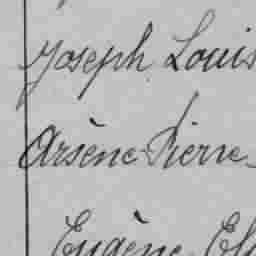 Joseph Louis
Arsène Pierre
Eugène